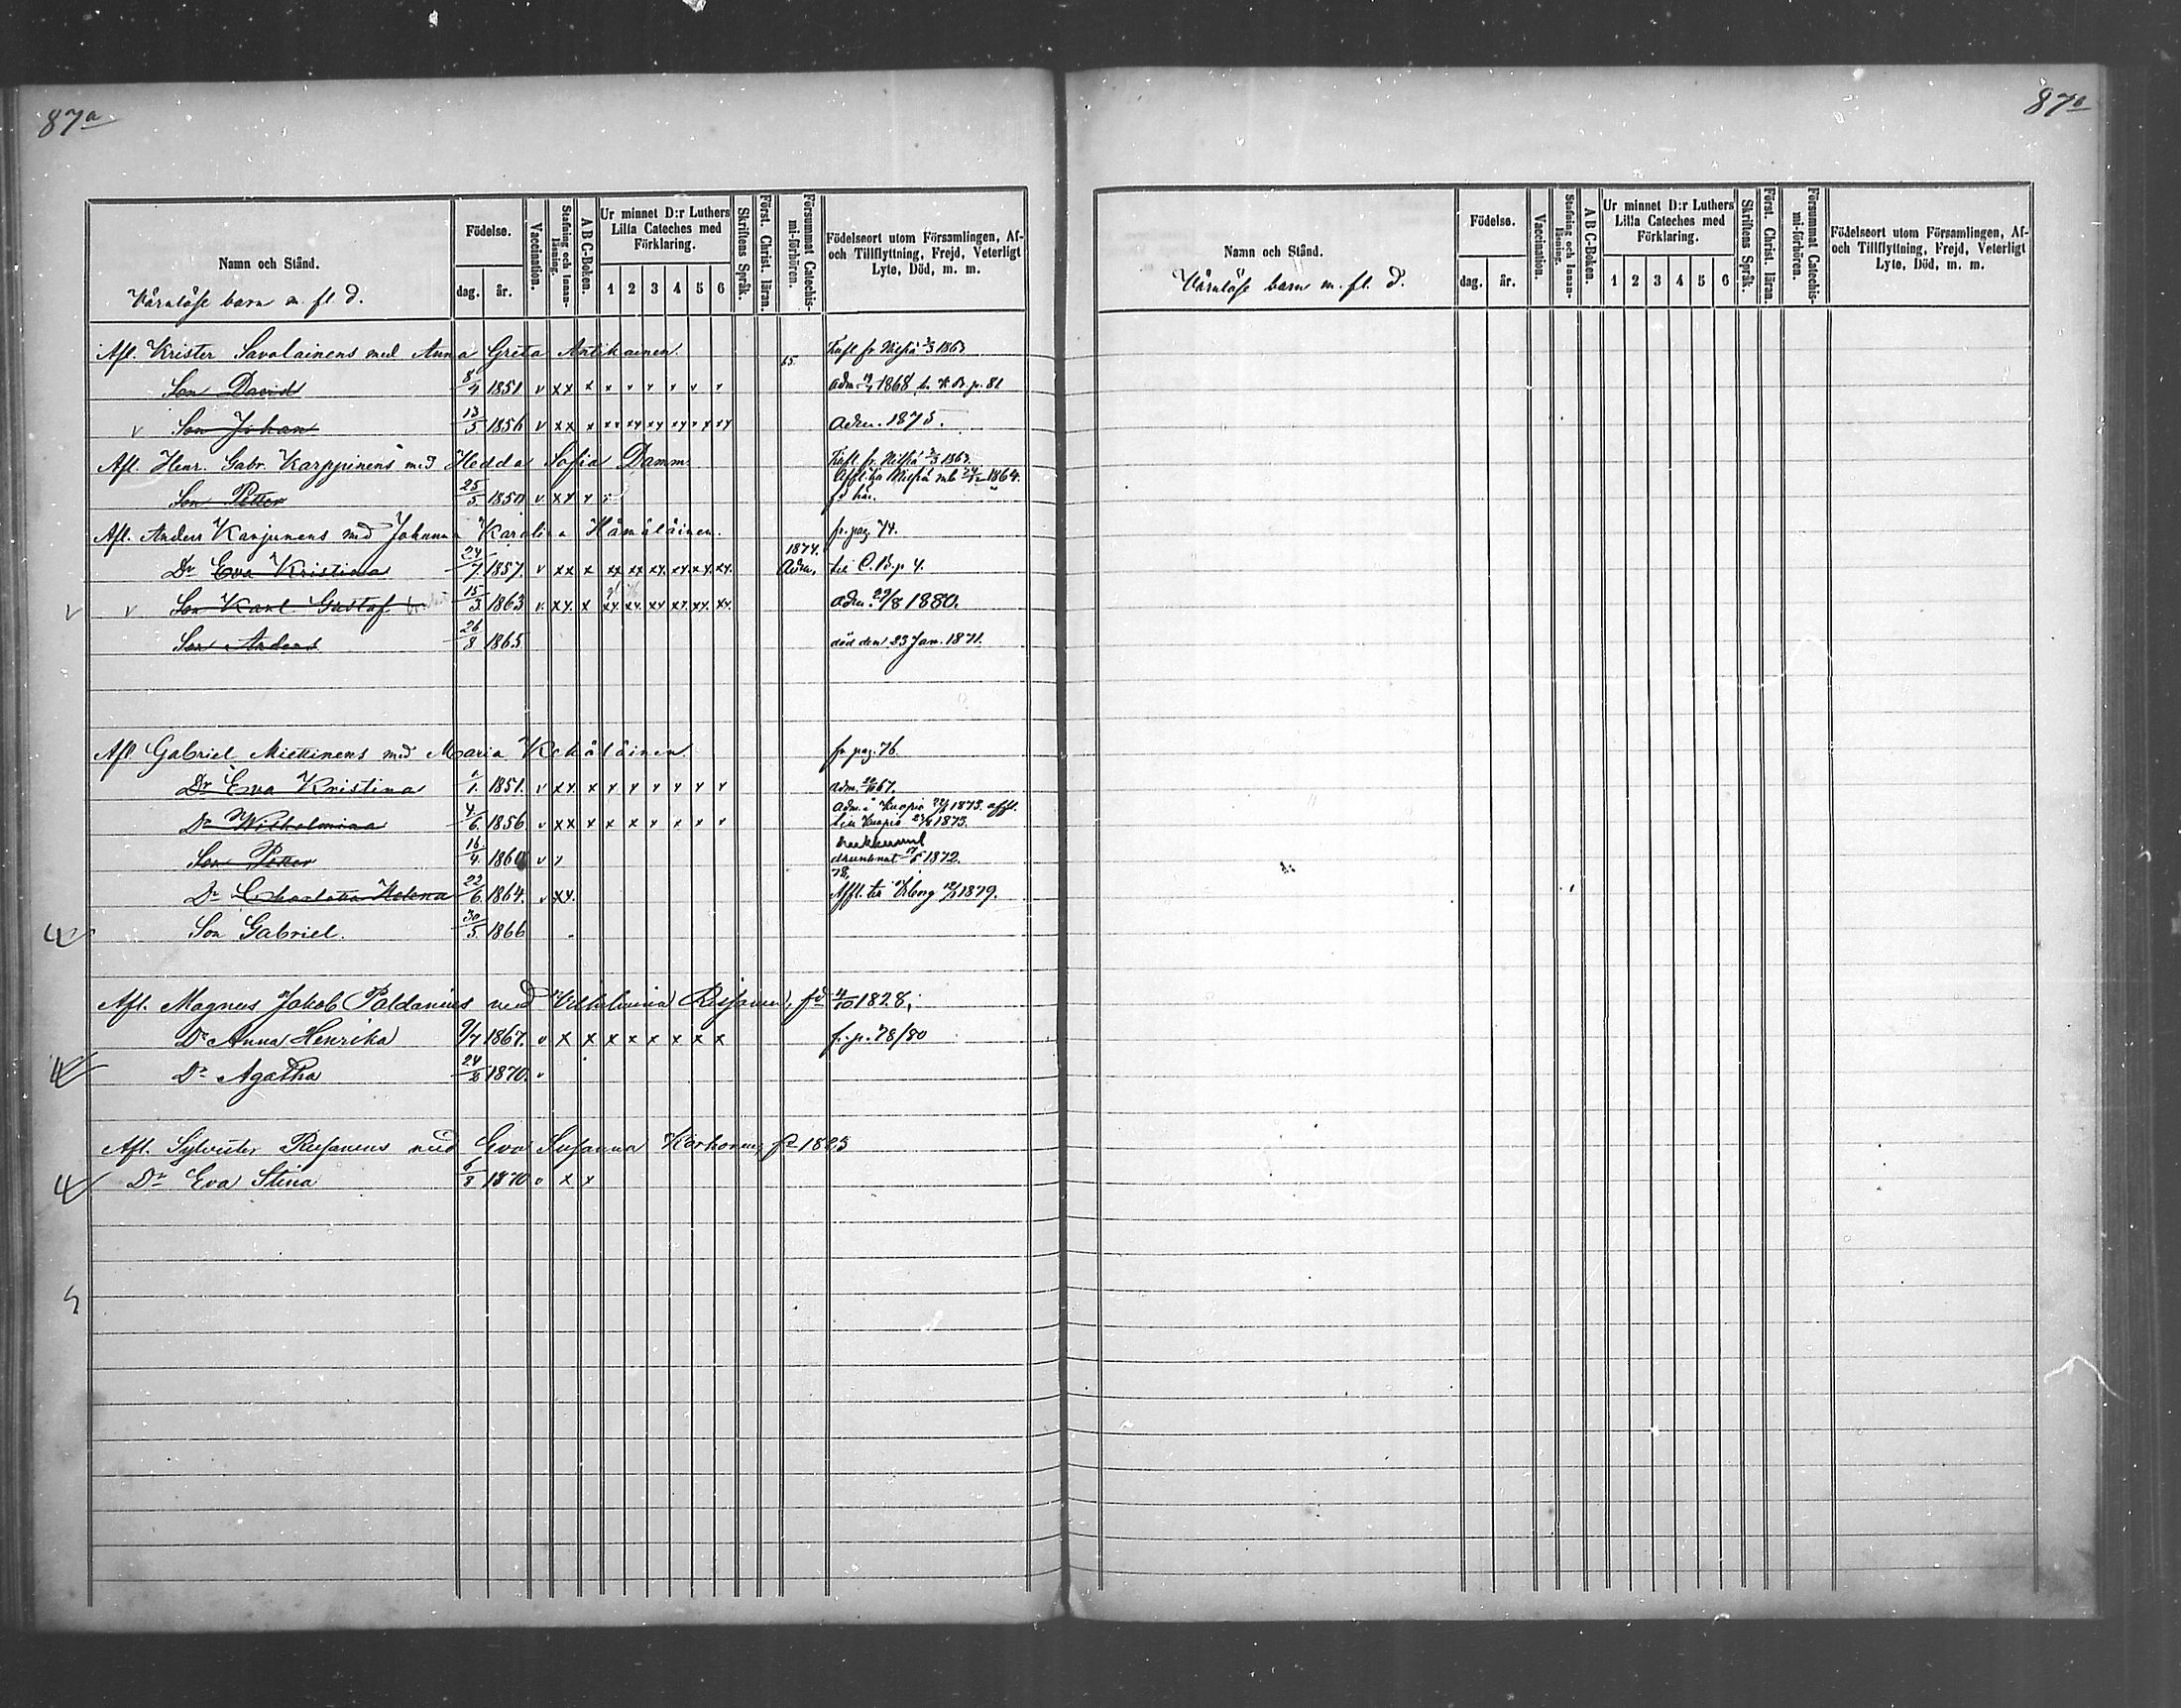 87a
Namn och Stånd.
Värnlöse barn m. fl. d.
Födelse.
dag. år.
Vaccination.
Stafning och Innan-läsning.
A B C-Boken.
Ur minnet D:r Luthers
Lilla Cateches med
Förklaring.
1 2 3 4 5 6
Skriftens Språk.
Först. Christ. läran.
Försummat Catechis-mi-förhören.
Födelseort utom Församlingen, Af-
och Tillflyttning, Frejd, Veterligt
Lyte, Död, m. m.
Afl. Krister Savolainens med Anna Greta Antikainen. 1863
Son David 8/4 1851 v xx x 1868 p. 81
v Son Johan 13/5 1856 v xx x adm. 1875.
Afl. Henr. Gabr. Karppinens med Hedda Sofia Damm 1863.
1864.
Son Petter 25/5 1850 v xx
Afl. Anders Karjunens med Johanna Karolina Hämäläinen. fr. pag. 74.
1874.
Dr Eva Kristina 24/7 1857. v xx x xx xx xx xx xx xx Adm. till C. B. p. 4.
v v Son Karl Gustaf 15/3 1863 v xx x xx xx xx xx xx xx adm. 29/8 1880.
Son Anders 26/8 1865 död den 23 Jan. 1871.
Afl. Gabriel Miettinens med Maria Kekäläinen. fr. pag. 76.
Dr Eva Kristina 1/1 1851. v xx x x x x x x x adm. 67.
adm. i Kuopio 1873. affl.
Dr Wilhelmina 4/6 1856 v xx x x x x x x x till Kuopio 1873.
Son Petter 16/4 186 v drunknat 1872.
78,
Dr Charlotta Helena 22/6 1864. v xx. Affl. till Viborg 1879.
Son Gabriel. 30/5 1866
Afl. Magnus Jakob Paldanius med Vilhelmina fd 4/10 1828,
Dr Anna Henrika 9/7 1867. v x x x x x x x x fr. p. 78/80
Dr Agatha 24/2 1870. v
Afl. Sylvester med Eva Susanna Korhonen, fd 1825
Dr Eva Stina 6/8 1870 v x x
87b
Namn och Stånd.
Värnlöse barn m. fl. d.
Födelse.
dag. år.
Vaccination.
Stafning och Innan-läsning.
A B C-Boken.
Ur minnet D:r Luthers
Lilla Cateches med
Förklaring.
1 2 3 4 5 6
Skriftens Språk.
Först. Christ. läran.
Försummat Catechis-mi-förhören.
Födelseort utom Församlingen, Af-
och Tillflyttning, Frejd, Veterligt
Lyte, Död, m. m.